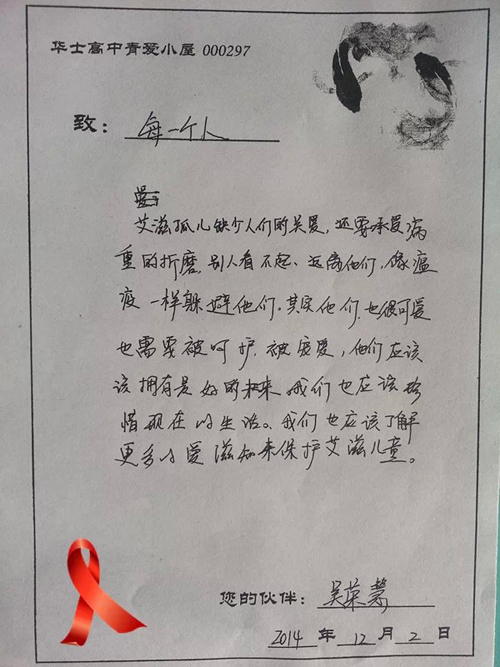 华士高中青爱小屋 000297
致：每一个人
艾滋孤儿缺少人们的关爱，还要承受病
重的折磨，别人看不起、远离他们，像瘟
疫一样躲避他们。其实他们也很可爱
也需要被呵护，被宠爱，他们应该
该拥有最好的未来。我们也应该珍
惜现在的生活。我们也应该了解
更多的爱滋知来保护艾滋儿童。
您的伙伴：吴荣
2014 年 12 月 2 日